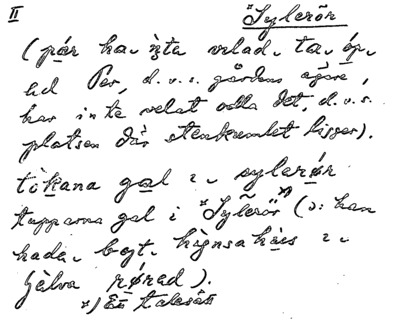 II "Sylerör
(pár ha. inte velad. ta. óp.
hd Per, d.v.s. gårdens ägare,
har inte velat odla det, d.v.s.
platsen där stenkumlet ligger).
tòkana gal i. sylerør
tupparna gal i "Sylerör" x) (ɔ: han
hade. bojt. hònsahùs i.
sjèlva rørad).
x) En talesätt